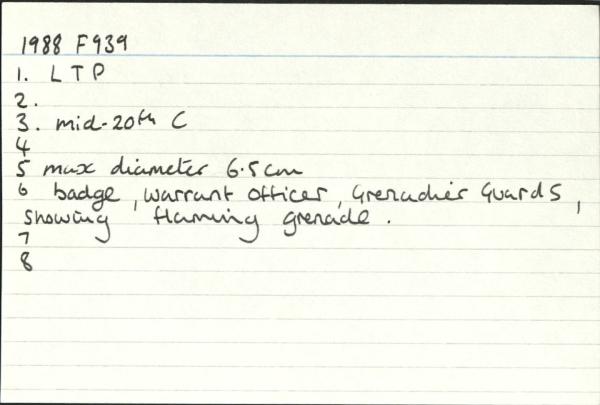 1988 F939
1. LTP
2.
3. mid-20th C
4
5 max diameter 6.5cm
6 badge, warrant officer, Grenadier Guards,
showing flaming grenade.
7
8